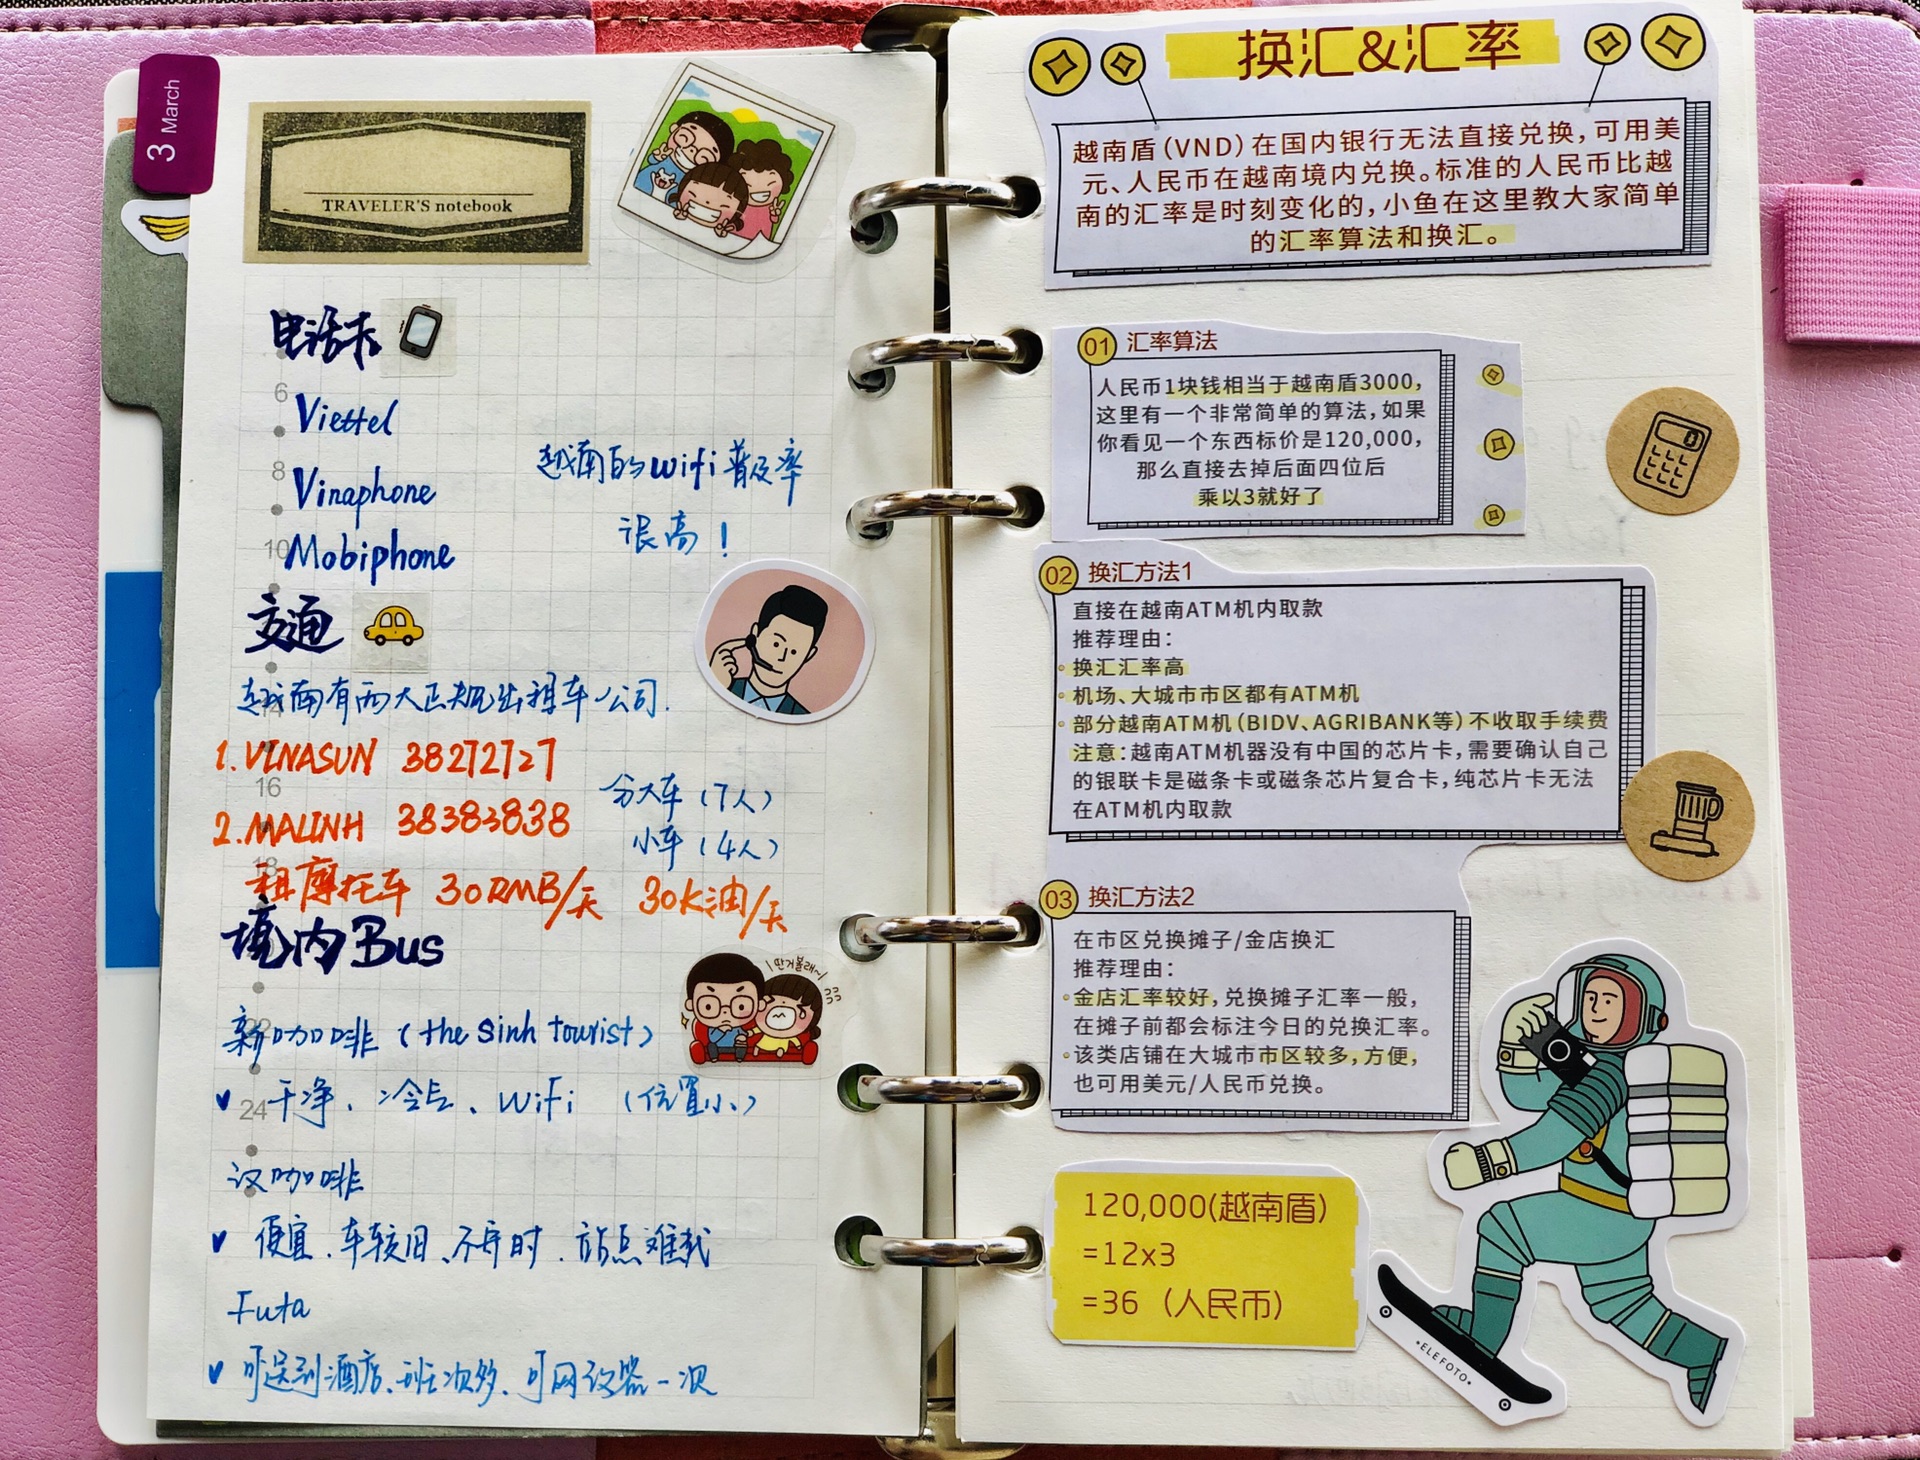 3 March
TRAVELER'S notebook
电话卡
6
Viettel
8
Vinaphone
越南的wifi普及率
很高！
10
Mobiphone
交通
越南有两大正规出租车公司.
1. VINASUN 38272727
16
分大车（7人）
2. MALINH 38383838
小车（4人）
18
租摩托车 30RMB/天 30K油/天
境内Bus
딴거볼래~
新咖啡（the sinh tourist）
24
干净、冷气、wifi （位置小）
汉咖啡
便宜.车较旧、不守时.站点难找
Futa
可送到酒店、班次多、可网
一次
换汇&汇率
越南盾(VND)在国内银行无法直接兑换,可用美
元、人民币在越南境内兑换。标准的人民币比越
南的汇率是时刻变化的,小鱼在这里教大家简单
的汇率算法和换汇。
01 汇率算法
人民币1块钱相当于越南盾3000,
这里有一个非常简单的算法,如果
你看见一个东西标价是120,000,
那么直接去掉后面四位后
乘以3就好了
02 换汇方法1
直接在越南ATM机内取款
推荐理由:
换汇汇率高
机场、大城市市区都有ATM机
部分越南ATM机(BIDV、AGRIBANK等)不收取手续费
注意:越南ATM机器没有中国的芯片卡,需要确认自己
的银联卡是磁条卡或磁条芯片复合卡,纯芯片卡无法
在ATM机内取款
03 换汇方法2
在市区兑换摊子/金店换汇
推荐理由:
金店汇率较好,兑换摊子汇率一般,
在摊子前都会标注今日的兑换汇率。
该类店铺在大城市市区较多,方便,
也可用美元/人民币兑换。
120,000(越南盾)
=12x3
=36 (人民币)
•ELEFOTO•